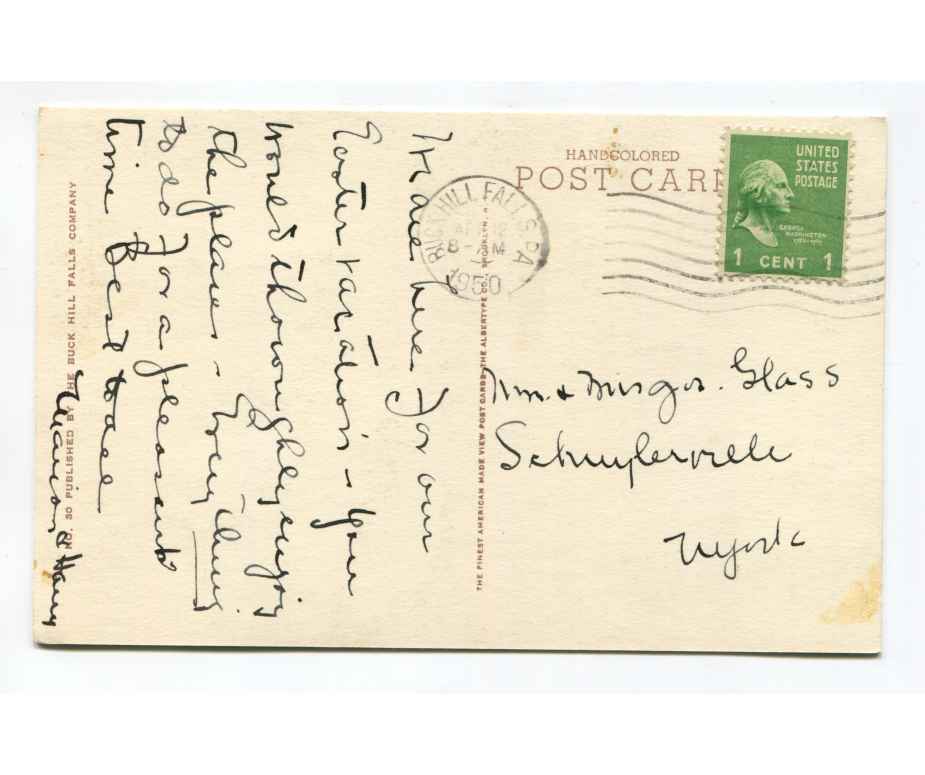 HANDCOLORED
POST CARD
UNITED
STATES
POSTAGE
GEORGE
WASHINGTON
1 CENT 1
BUCK HILL FALLS PA
APR 12
8 - AM
1950
are here for our
Easter vacation - You
would thoroughly enjoy
the place -
to do for a pleasant
time Best to all
Marion & Harry
Mr. & Mrs Geo. Glass
Schuylerville
N York
THE FINEST AMERICAN MADE VIEW POST CARDS - THE ALBERTYPE CO., BROOKLYN, N.
NO. 30 PUBLISHED BY THE BUCK HILL FALLS COMPANY